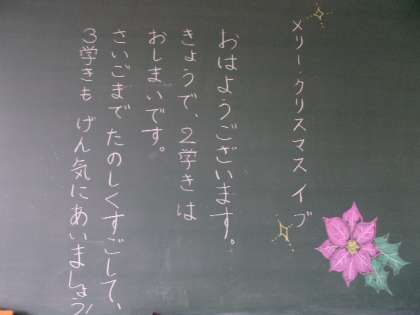 メリー・クリスマス イブ
おはようございます。
きょうで、2学きは
おしまいです。
さいごまで たのしくすごして、
3学きも げん気にあいましょう!